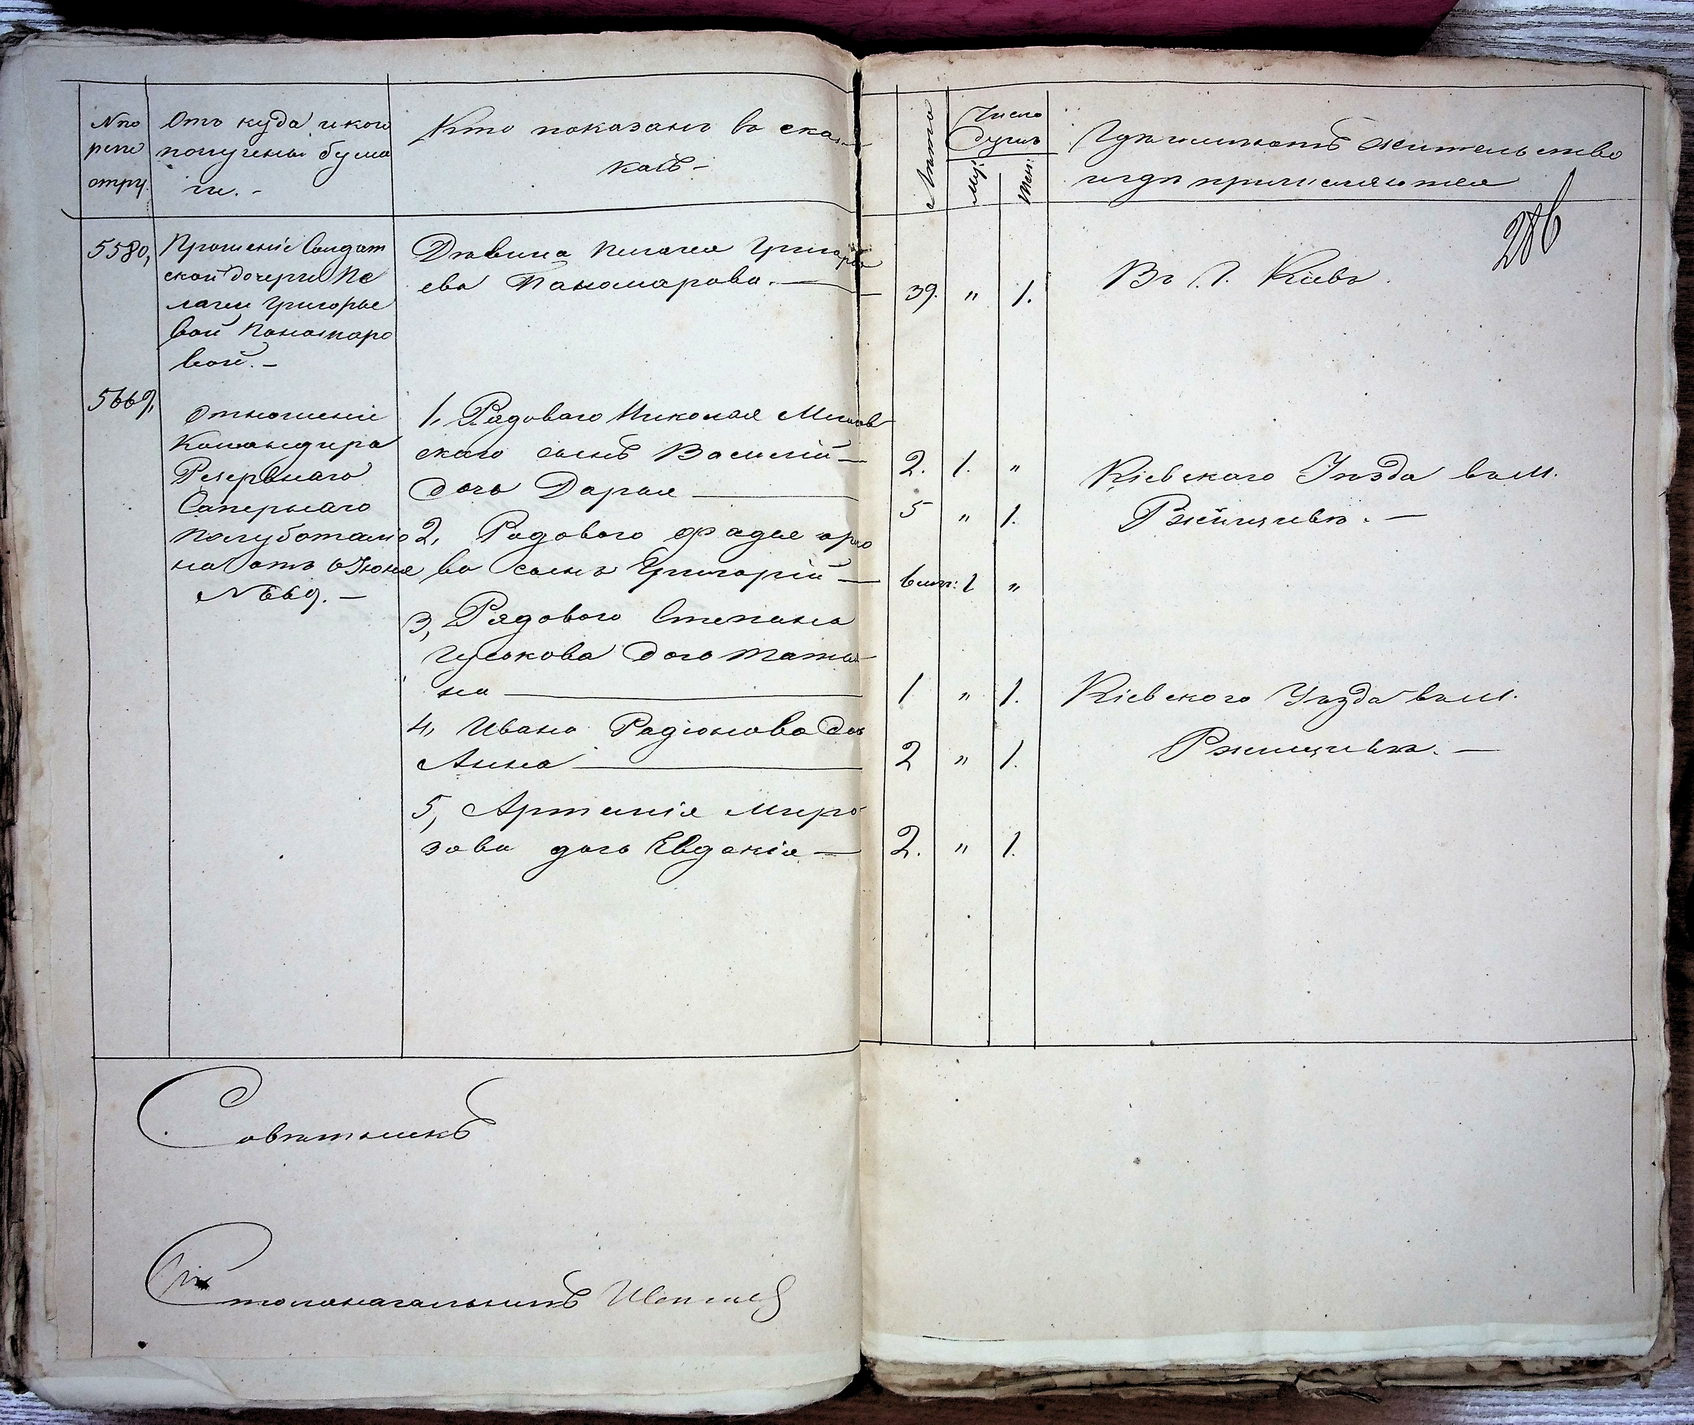 № по
реги
стру.
Отъ куда и кого
получены бума
ги. -
Кто показанъ въ сказ-
кахъ -
Лѣта
Число
Душъ
Муж:
Жен:
Гдѣ имѣютъ жительство
и гдѣ причисляются
286
5580,
Прошеніе Солдат
ской дочери Пе
лагеи Григорье
вой Паномаро
вой. -
Дѣвица Пелагея Григорь
ева Паномарова. -
39. " 1.
Въ Г. Кіевѣ.
5669,
Отношеніе
Командира
Резервнаго
Сапернаго
полубаталіо
на отъ 6 Іюня
№ 669. -
1, Рядоваго Николая
скаго сынъ Василій -
2. 1. "
дочь Дарья
5 " 1.
Кіевскаго Уѣзда въ м.
Ржищевѣ. -
2, Рядоваго Фадея
ва сынъ Григорій -
6 мѣс: 1 "
3, Рядоваго Степана
Гуськова дочь Татья-
на
1 " 1.
Кіевскаго Уѣзда въ м.
Ржищевѣ. -
4, Ивана Радіонова дочь
Анна
2 " 1.
5, Артемія Миро
зова дочь Евдокія -
2. " 1.
Совѣтникъ
Столоначальникъ